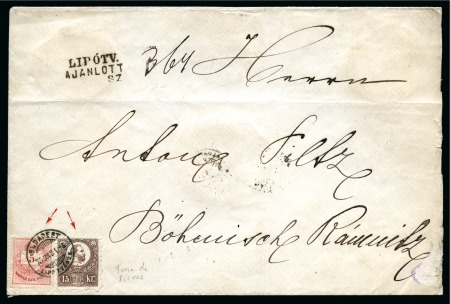 LIPÓTV.
AJANLOTT
SZ
364 Herrn
Antona Filtz
Böhmisch Kamnitz
BUDAPEST
15 KR.